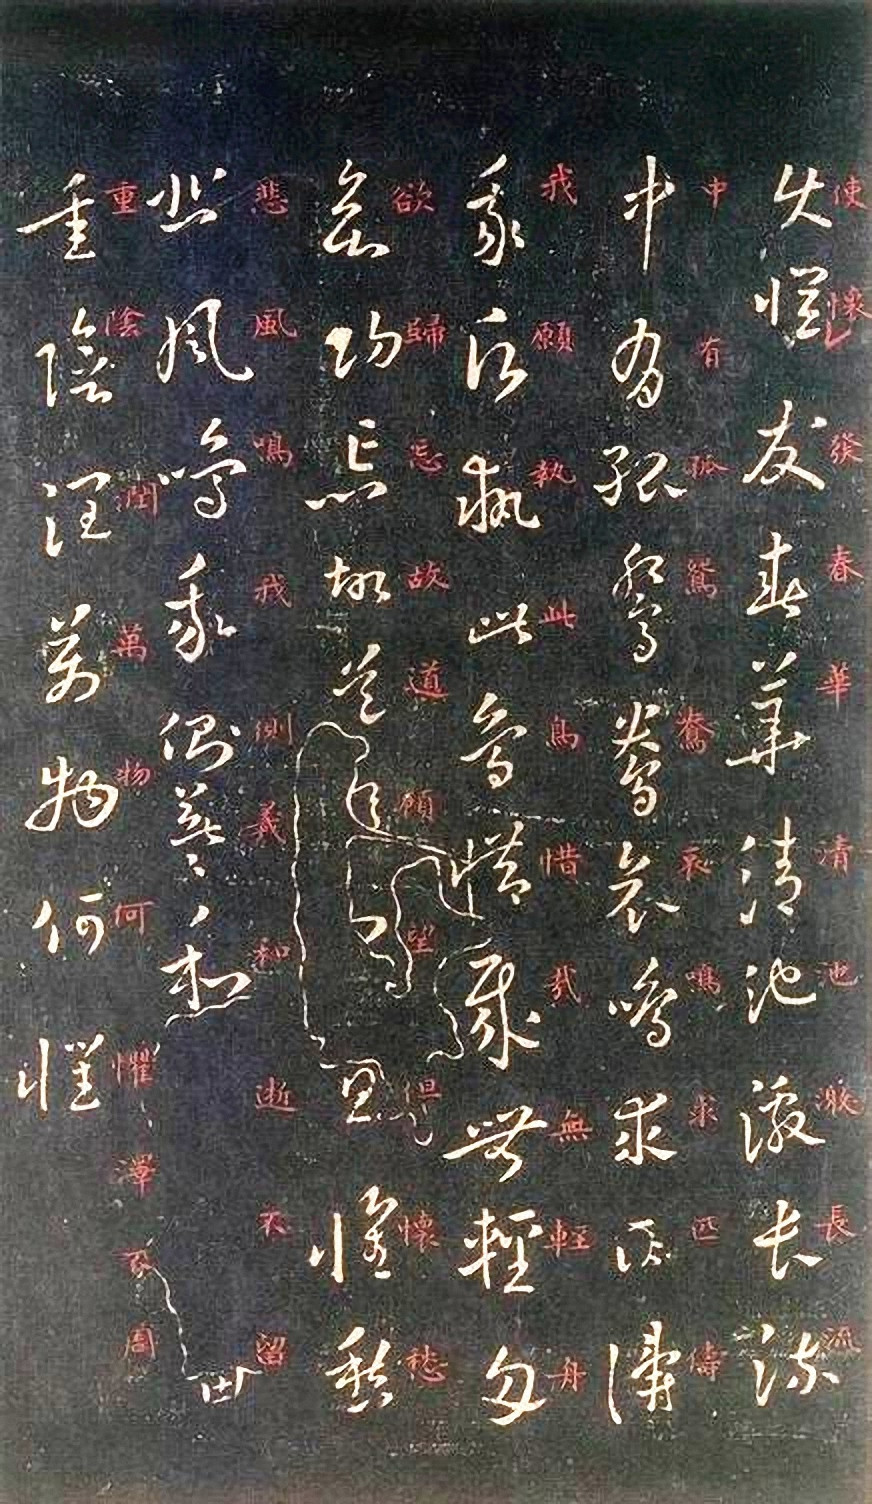 使懷發春華清池激長流
使懷發春華清池激長流
中有孤鴛鴦哀鳴求匹儔
中有孤鴛鴦哀鳴求匹儔
我願執此鳥惜哉無輕舟
我願執此鳥惜哉無輕舟
欲歸忘故道顧望但懷愁
欲歸忘故道顧望但懷愁
悲風鳴我側羲和逝不留
悲風鳴我側羲和
重陰潤萬物何懼澤不周
重陰潤萬物何懼